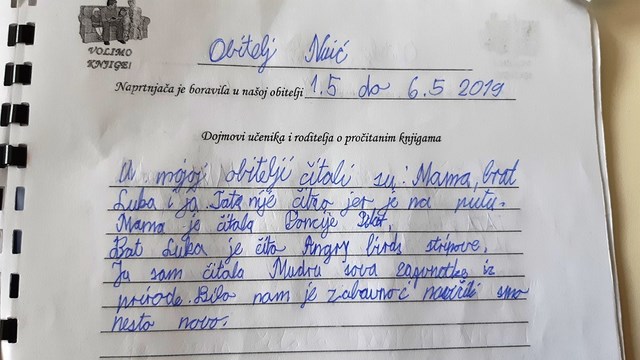 VOLIMO
KNJIGE!
Obitelj Nuić
Naprtnjača je boravila u našoj obitelji 1.5 do 6.5 2019
Dojmovi učenika i roditelja o pročitanim knjigama
U mojoj obitelji čitali su: Mama, brat
Luka i ja. Tata nije čitao jer je na putu.
Mama je čitala Poncije Pilat.
Bat Luka je čito Angry birds stripove.
Ja sam čitala Mudra sova zagonetke iz
prirode. Bilo nam je zabavno i smo
nesto novo.